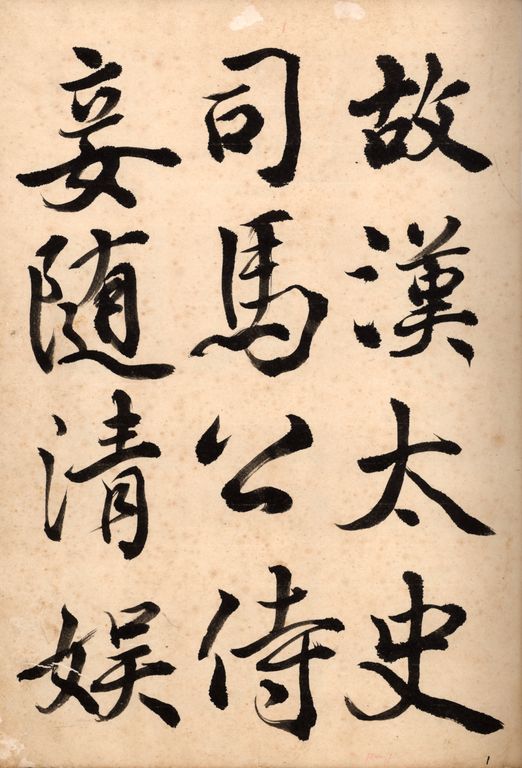 故漢太史
司馬公侍
妾随清娱
1